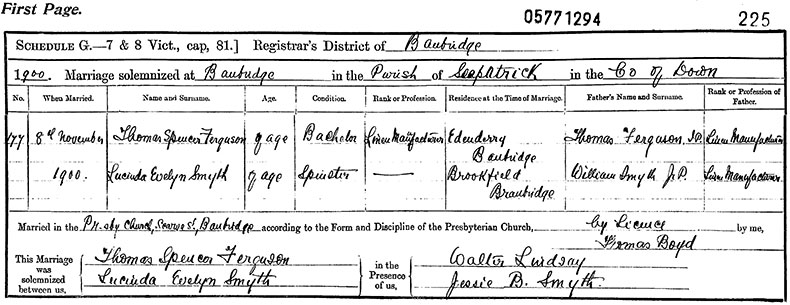 First Page.
05771294 225
SCHEDULE G.—7 & 8 Vict., cap, 81.] Registrar's District of Banbridge
1900. Marriage solemnized at Banbridge in the Parish of Seapatrick in the Co of Down
No. When Married. Name and Surname. Age. Condition. Rank or Profession. Residence at the Time of Marriage. Father's Name and Surname. Rank or Profession of Father.
77 8th November Thomas Spencer Ferguson of age Bachelor Linen Manufacturer Edenderry Banbridge Thomas Ferguson, Linen Manufacturer
1900. Lucinda Evelyn Smyth of age Spinster — Brookfield Banbridge William Smyth J.P. Linen Manufacturer
Married in the Presby Church, Scarva St, Banbridge according to the Form and Discipline of the Presbyterian Church, by Licence by me,
Thomas Boyd
This Marriage was solemnized between us, Thomas Spencer Ferguson
Lucinda Evelyn Smyth
in the Presence of us, Walter Lindsay
Jessie B. Smyth.